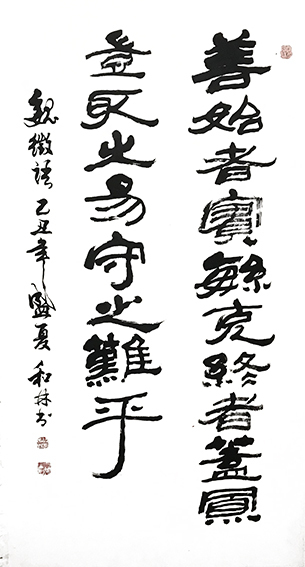 善始者實繁克終者蓋寡
豈取之易守之難乎
魏徵語己丑年盛夏和林书